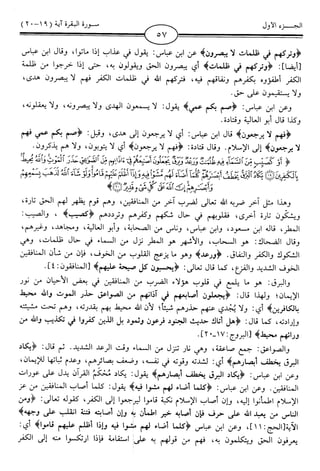 الجزء الأول
سورة البقرة آية (١٩-٢٠)
٥٧
﴿وتركهم في ظلمات لا يبصرون﴾ عن ابن عباس: يقول في عذاب إذا ماتوا، وقال ابن عباس
[أيضاً]: ﴿وتركهم في ظلمات﴾ أي يبصرون الحق ويقولون به، حتى إذا خرجوا من ظلمة
الكفر أطفؤوه بكفرهم ونفاقهم فيه، فتركهم الله في ظلمات الكفر فهم لا يبصرون هدى،
ولا يستقيمون على حق.
وعن ابن عباس: ﴿صم بكم عمي﴾ يقول: لا يسمعون الهدى ولا يبصرونه، ولا يعقلونه،
وكذا قال أبو العالية وقتادة.
﴿فهم لا يرجعون﴾ قال ابن عباس: أي لا يرجعون إلى هدى، وقيل: ﴿صم بكم عمي فهم
لا يرجعون﴾ إلى الإسلام. وقال قتادة: ﴿فهم لا يرجعون﴾ أي لا يتوبون، ولا هم يذكرون.
﴿أو كصيب من السماء فيه ظلمات ورعد وبرق يجعلون أصابعهم في آذانهم من الصواعق حذر الموت والله محيط
بالكافرين ۝ يكاد البرق يخطف أبصارهم كلما أضاء لهم مشوا فيه وإذا أظلم عليهم قاموا ولو شاء الله لذهب بسمعهم
وأبصارهم إن الله على كل شيء قدير ۝﴾
وهذا مثل آخر ضربه الله تعالى لضرب آخر من المنافقين، وهم قوم يظهر لهم الحق تارة،
ويشكون تارة أخرى، فقلوبهم في حال شكهم وكفرهم وترددهم ﴿كصيب﴾، والصيب:
المطر، قاله ابن مسعود، وابن عباس، وناس من الصحابة، وأبو العالية، ومجاهد، وغيرهم،
وقال الضحاك: هو السحاب، والأشهر هو المطر نزل من السماء في حال ظلمات، وهي
الشكوك والكفر والنفاق. ﴿ورعد﴾ وهو ما يزعج القلوب من الخوف، فإن من شأن المنافقين
الخوف الشديد والفزع، كما قال تعالى: ﴿يحسبون كل صيحة عليهم﴾ [المنافقون: ٤].
والبرق: هو ما يلمع في قلوب هؤلاء الضرب من المنافقين في بعض الأحيان من نور
الإيمان؛ ولهذا قال: ﴿يجعلون أصابعهم في آذانهم من الصواعق حذر الموت والله محيط
بالكافرين﴾ أي: ولا يُجدي عنهم حذرهم شيئاً؛ لأن الله محيط بهم بقدرته، وهم تحت مشيئته
وإرادته، كما قال: ﴿هل أتاك حديث الجنود فرعون وثمود بل الذين كفروا في تكذيب والله من
ورائهم محيط﴾ [البروج: ١٧-٢٠].
والصواعق: جمع صاعقة، وهي نار تنزل من السماء وقت الرعد الشديد. ثم قال: ﴿يكاد
البرق يخطف أبصارهم﴾ أي: لشدته وقوته في نفسه، وضعف بصائرهم، وعدم ثباتها للإيمان،
وعن ابن عباس: ﴿يكاد البرق يخطف أبصارهم﴾ يقول: يكاد مُحْكَمُ القرآن يدل على عورات
المنافقين. وعن ابن عباس: ﴿كلما أضاء لهم مشوا فيه﴾ يقول: كلما أصاب المنافقين من عز
الإسلام اطمأنوا إليه، وإن أصاب الإسلام نكبة قاموا ليرجعوا إلى الكفر، كقوله تعالى: ﴿ومن
الناس من يعبد الله على حرف فإن أصابه خير اطمأن به وإن أصابته فتنة انقلب على وجهه﴾
الآية [الحج: ١١]، وعن ابن عباس ﴿كلما أضاء لهم مشوا فيه وإذا أظلم عليهم قاموا﴾ أي:
يعرفون الحق ويتكلمون به، فهم من قولهم به على استقامة فإذا ارتكسوا منه إلى الكفر